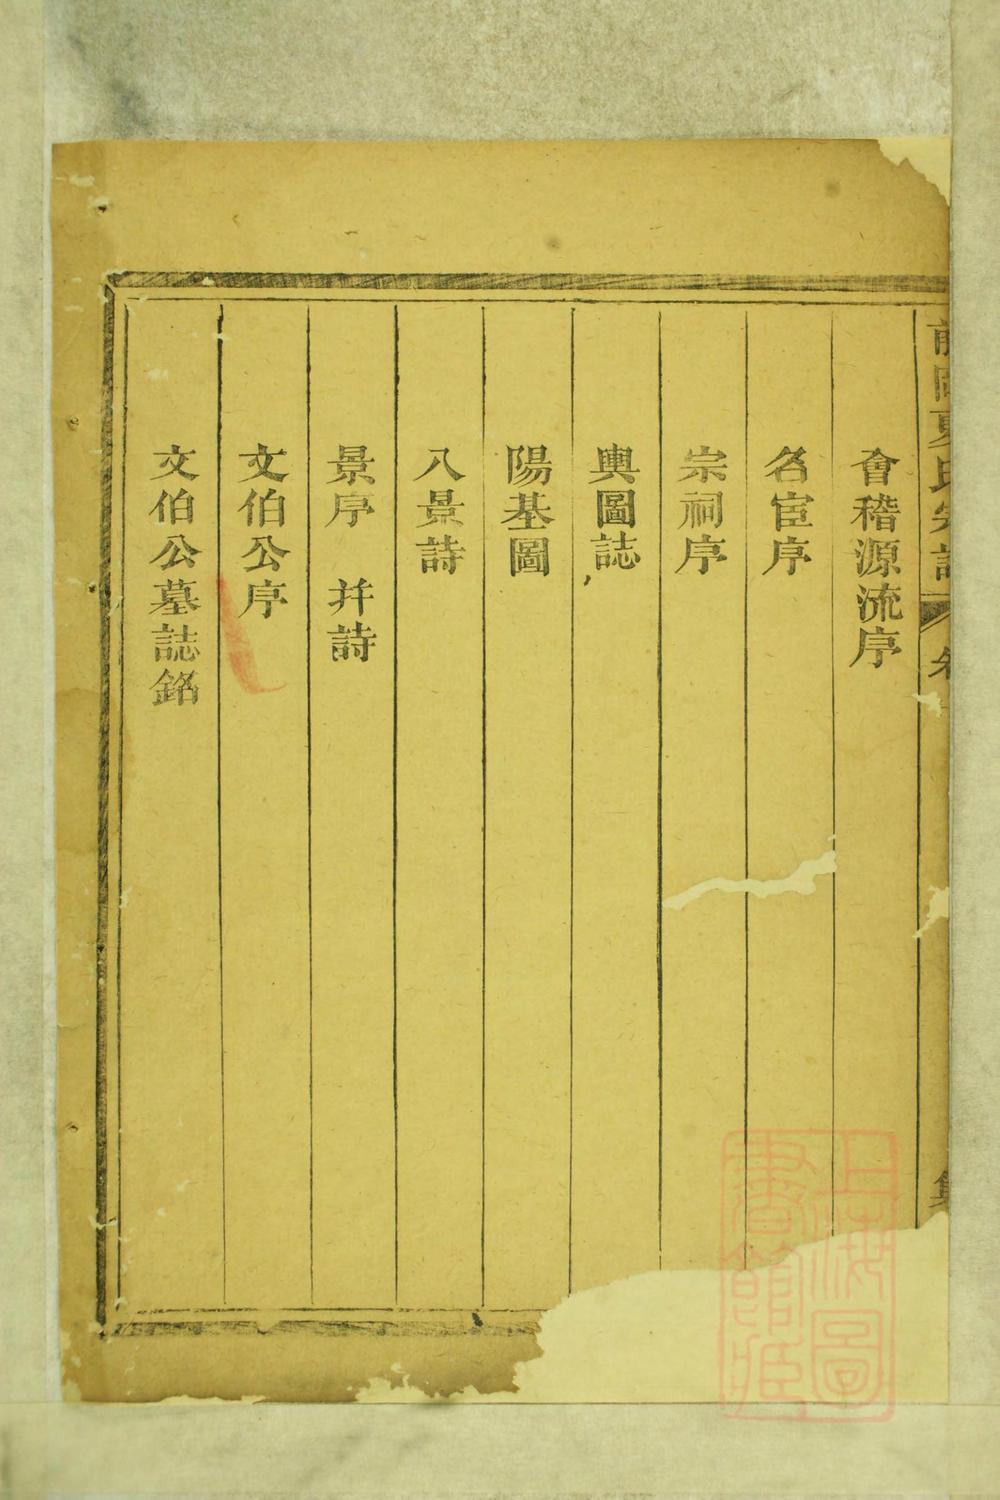 會稽源流序
名宦序
宗祠序
輿圖誌
陽基圖
八景詩
景序 幷詩
文伯公序
文伯公墓誌銘
上海圖
書館藏